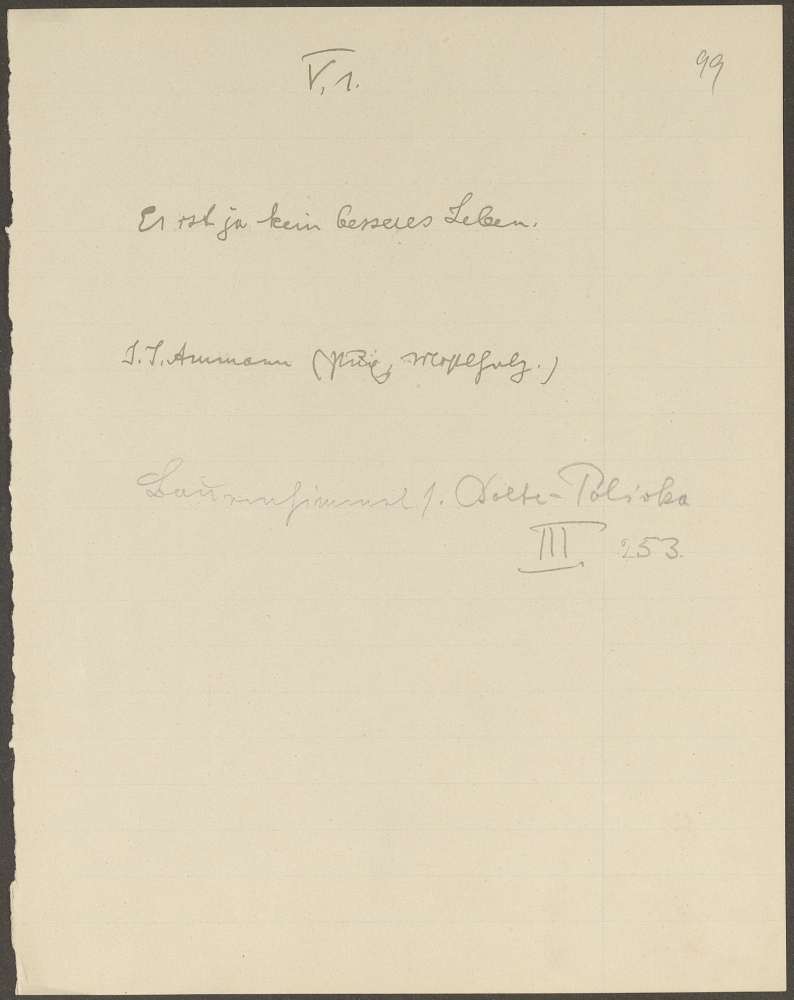 V, 1.
99
Es ist ja kein besseres Leben.
J. J. Ammann
Bauernhimmel s. Bolte-Polivka
III 253.